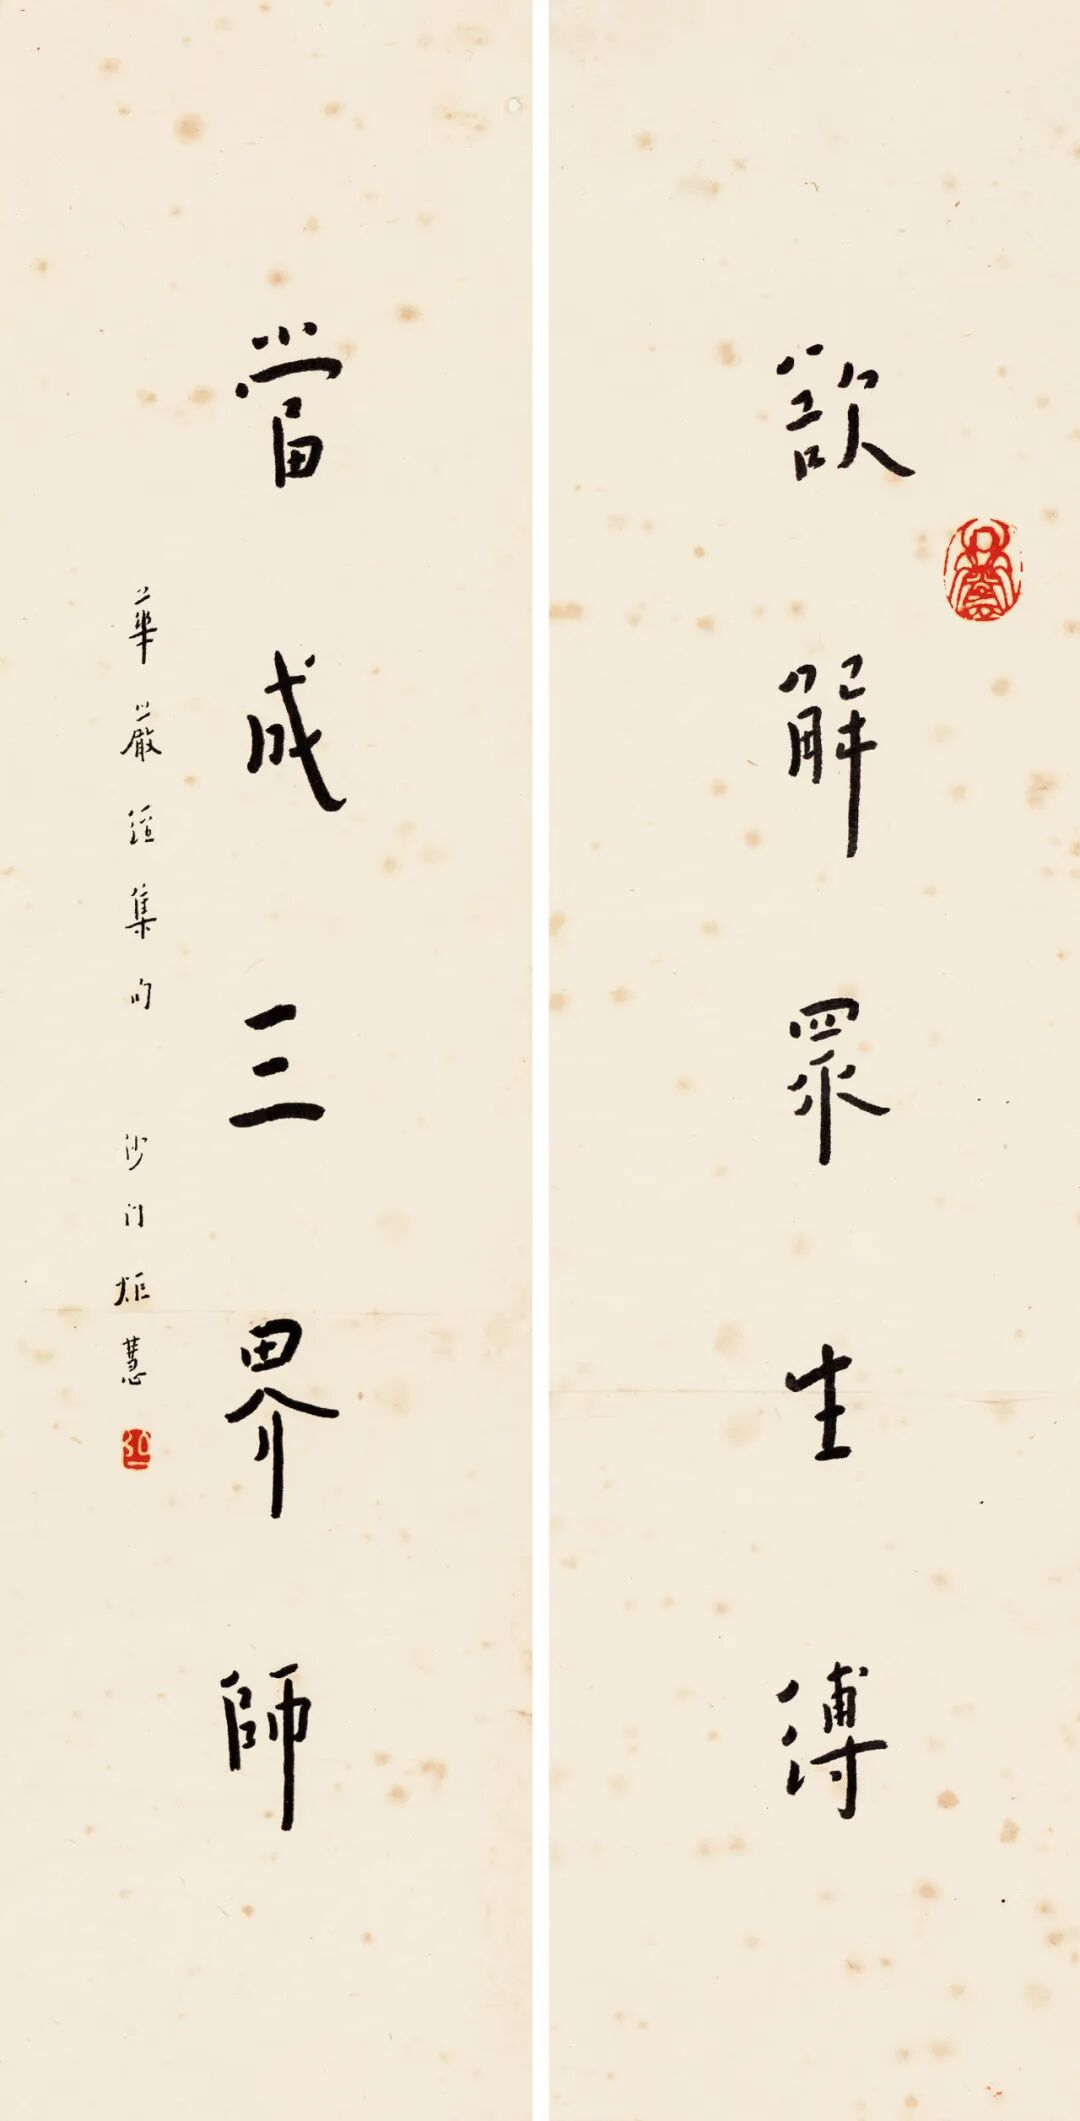 欲解眾生縛
當成三界師
華嚴經集句 沙門炬慧
弘一